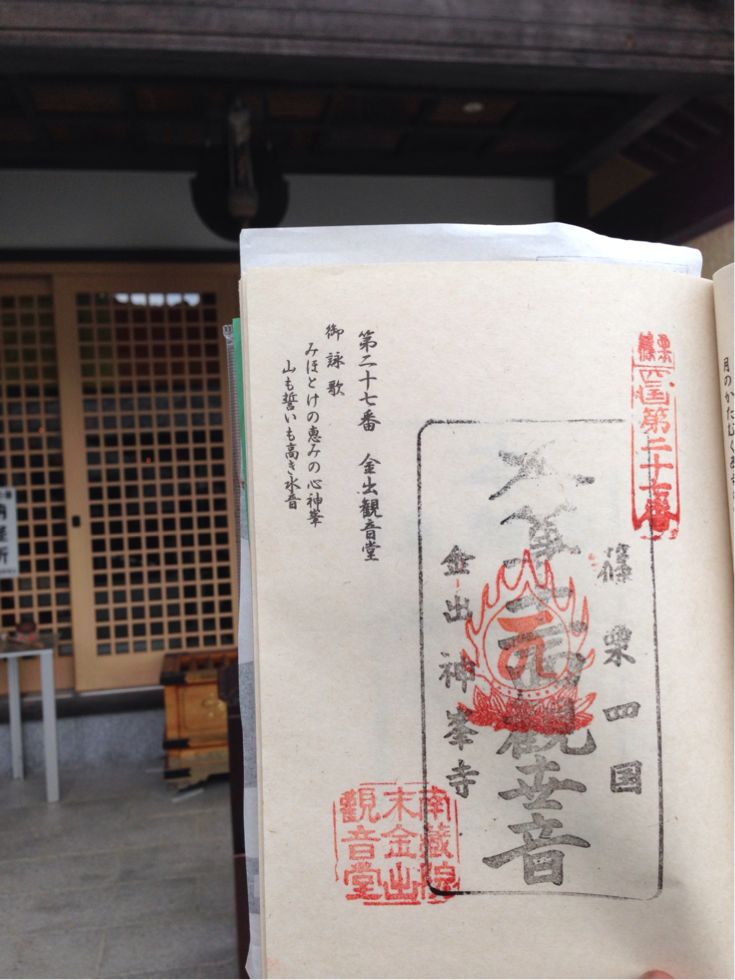 月のかたむく
篠栗四国第二十七番
篠栗四国
本尊十一面観世音
金出神峯寺
南蔵院
末金出
観音堂
第二十七番 金出観音堂
御詠歌
みほとけの恵みの心神峯
山も誓いも高き水音
納経所